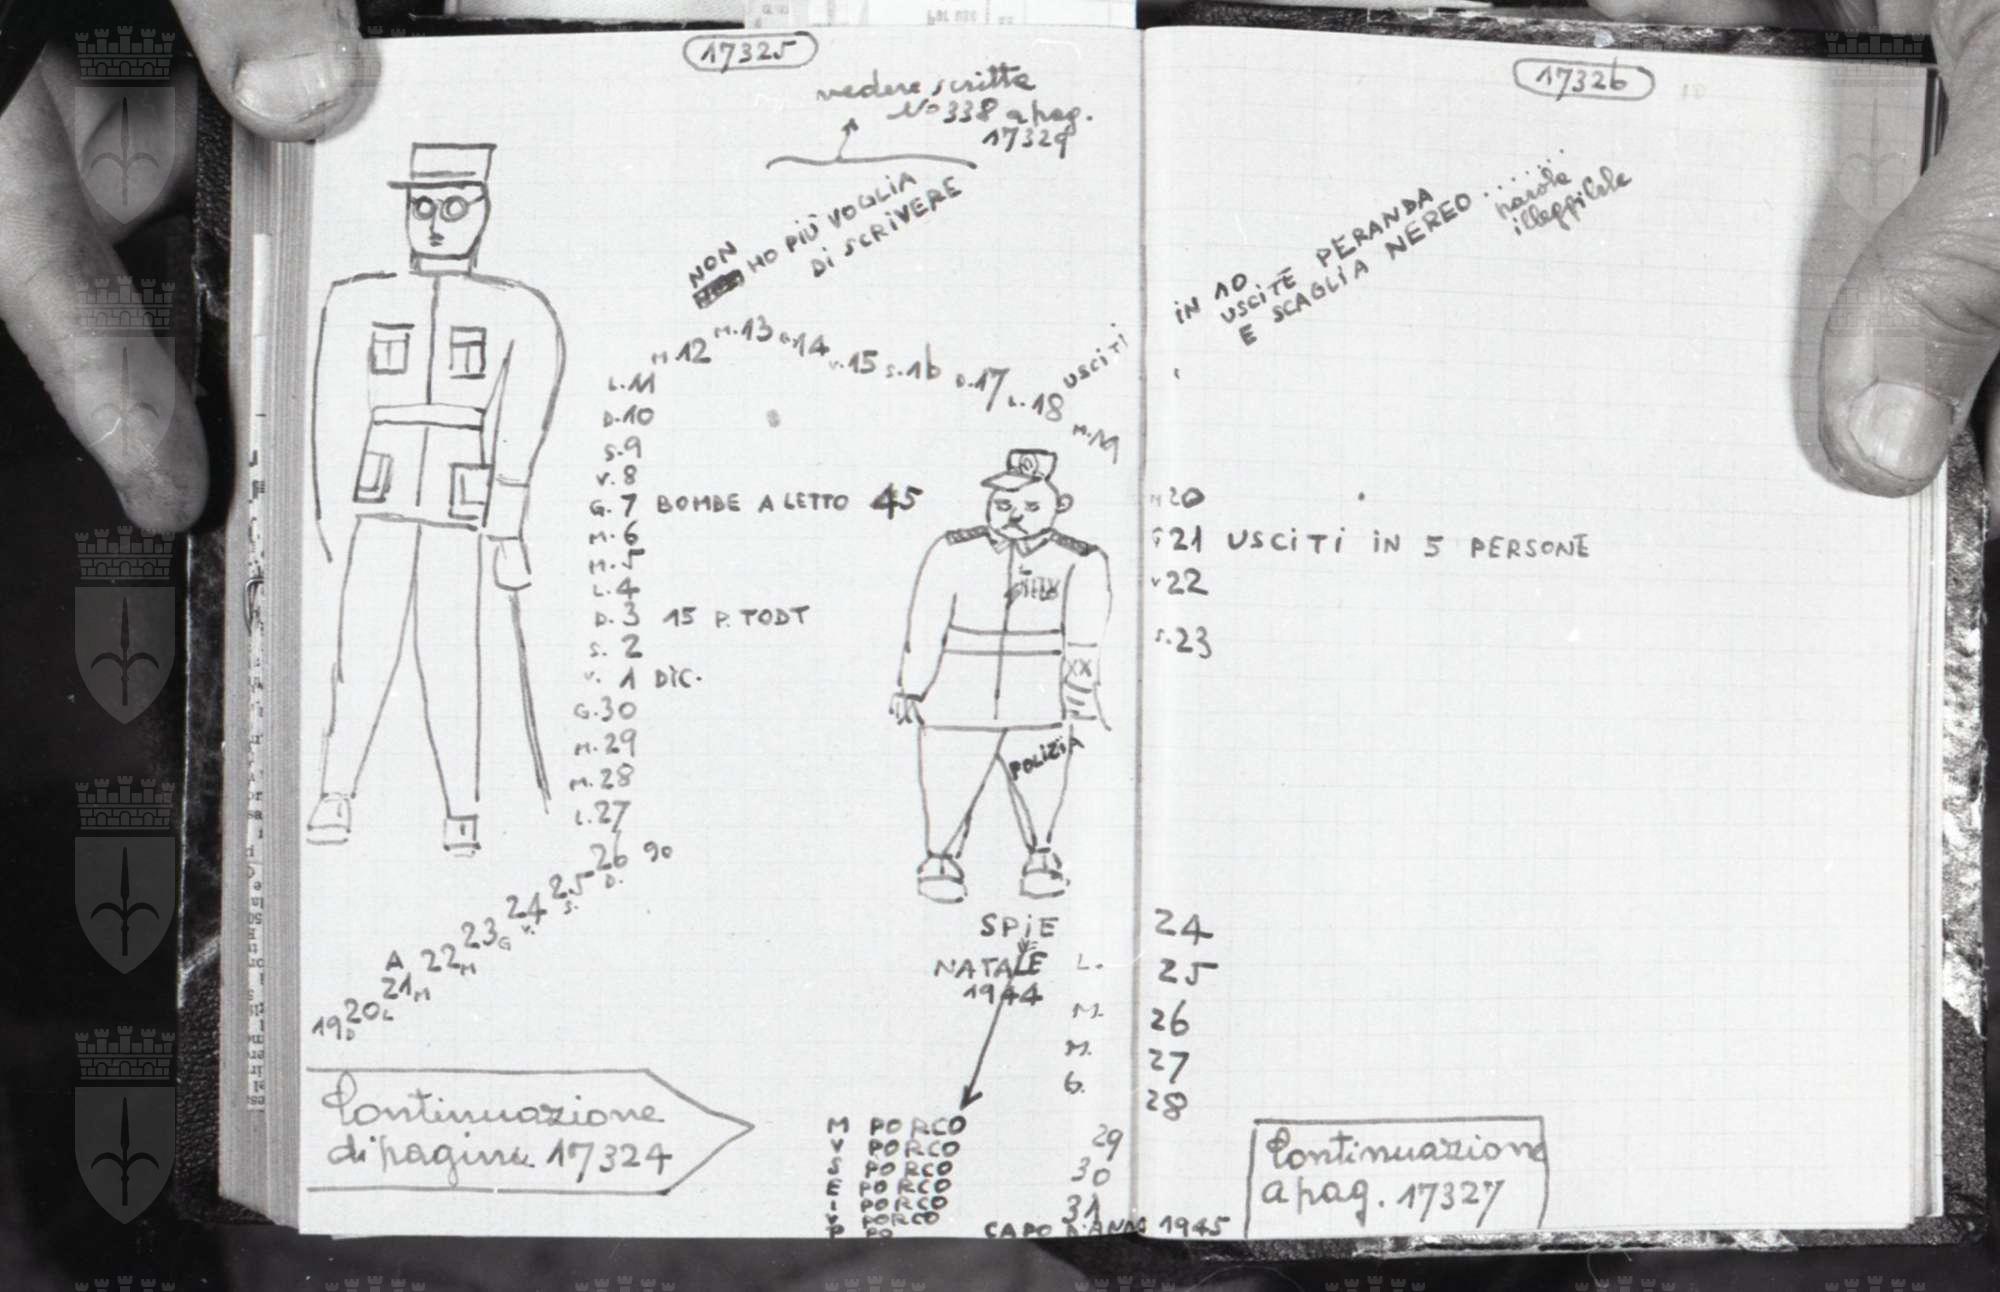 17325
vedere scritta
No 338 a pag.
17329
NON
HO PIÙ VOGLIA
DI SCRIVERE
M.12 M.13 G.14 V.15 S.16 D.17 L.18 USCITI
M.19
L.11
D.10
S.9
V.8
G.7 BOMBE A LETTO 45
M.6
M.5
L.4
D.3 15 P. TODT
S.2
V. 1 DIC.
G.30
M.29
M.28
L.27
26 D. 90
25 S.
24 V.
23 G
A 22 M
21 M
20 L
19 D
XX
POLIZIA
SPIE
NATALE L.
1944
M.
M.
G.
Continuazione
di pagina 17324
M PORCO
V PORCO 29
S PORCO
E PORCO 30
I PORCO
V PORCO 31
P PO
CAPO D'ANNO 1945
17326
IN 10
USCITE PERANDA
E SCAGLIA NEREO ......
parola
illeggibile
20
G 21 USCITI IN 5 PERSONE
V 22
S.23
24
25
26
27
28
Continuazione
a pag. 17327